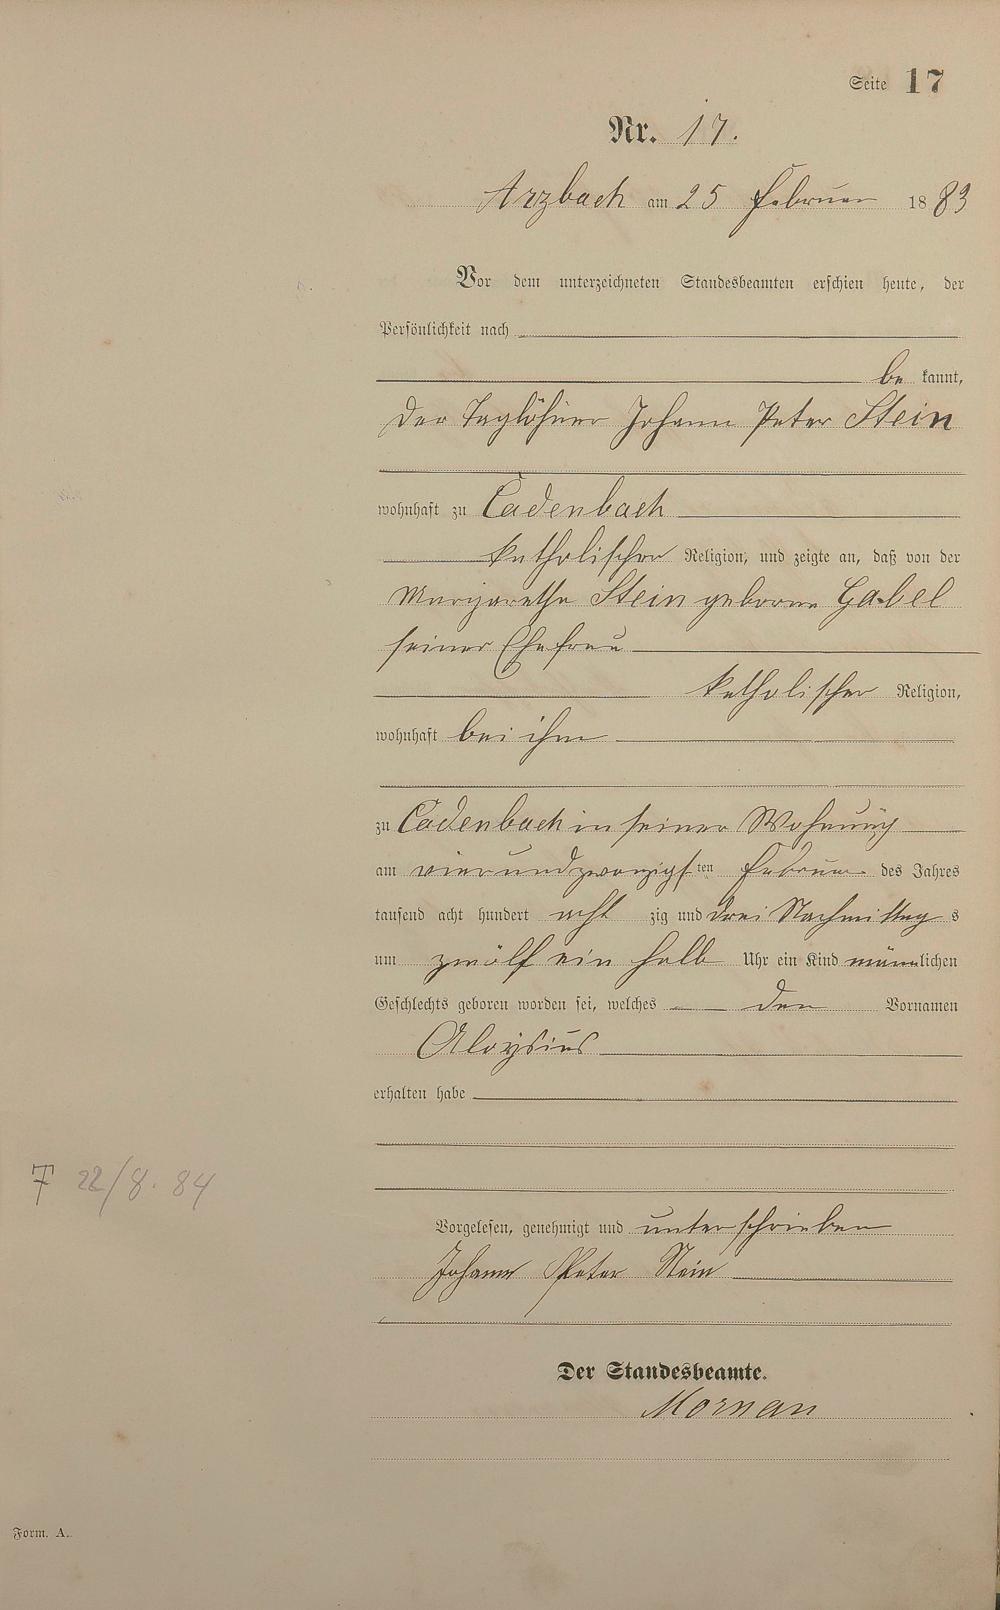 Seite 17
Nr. 17.
Arzbach am 25 Februar 1883
Vor dem unterzeichneten Standesbeamten erschien heute, der
Persönlichkeit nach
be kannt,
der Taglöhner Johann Peter Stein
wohnhaft zu Cadenbach
katholischer Religion, und zeigte an, daß von der
Margarethe Stein geborene Gabel
seiner Ehefrau
katholischer Religion,
wohnhaft bei ihm
zu Cadenbach in seiner Wohnung
am vierundzwanzigsten Februar des Jahres
tausend acht hundert acht zig und drei Nachmittag s
um zwölf ein halb Uhr ein Kind männlichen
Geschlechts geboren worden sei, welches den Vornamen
Aloysius
erhalten habe
† 22/8. 84
Vorgelesen, genehmigt und unterschrieben
Johann Peter Stein
Der Standesbeamte.
Mornan
Form. A.